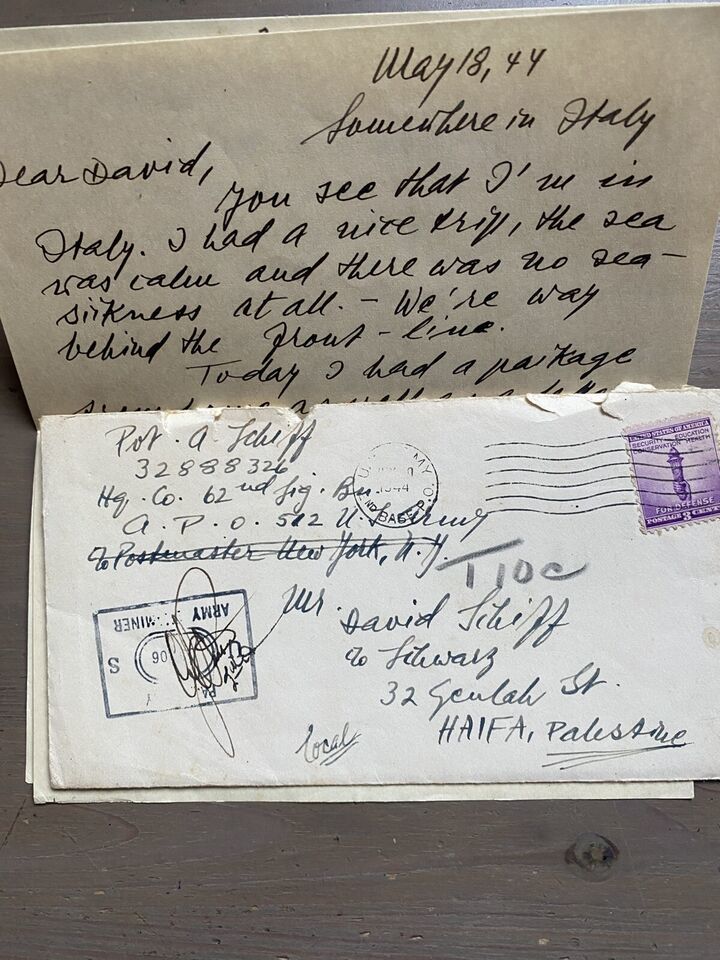 May 18, 44
Somewhere in Italy
Dear David,
You see that I'm in
Italy. I had a nice trip, the sea
was calm and there was no sea-
sikness at all. - We're way
behind the front-line.
Today I had a package
Pvt. A Schiff
32888326
Hq. Co. 62nd Sig. Bn.
A.P.O. 512 U.S. Army
c/o Postmaster New York, N.Y.
1944
BASE
UNITED STATES OF AMERICA
SECURITY EDUCATION
CONSERVATION HEALTH
FOR DEFENSE
POSTAGE 3 CENTS
T10c
ARMY MINER
06
S
Mr. David Schiff
c/o Schwarz
32 Geulah St.
HAIFA, Palestine
local